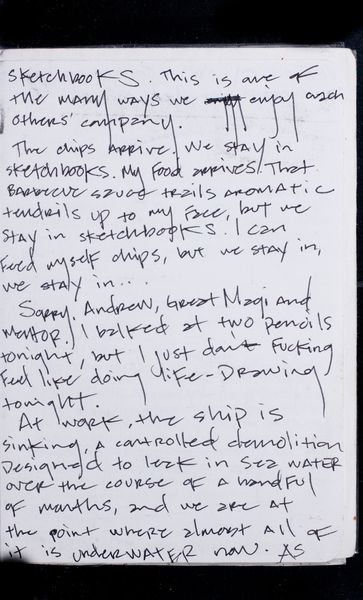 sketchbooks. This is one of
the many ways we enjoy each
others' company.
The chips arrive. We stay in
sketchbooks. My food arrives. That
Barbecue sauce trails aromatic
tendrils up to my face, but we
stay in sketchbooks. I can
feed myself chips, but we stay in,
we stay in...
Sorry, Andrew, Great Magi and
Mentor. I balked at two pencils
tonight, but I just don't fucking
feel like doing life-drawing
tonight.
At work, the ship is
sinking, a controlled demolition
designed to leak in sea water
over the course of a handful
of months, and we are at
the point where almost all of
it is underwater now. As